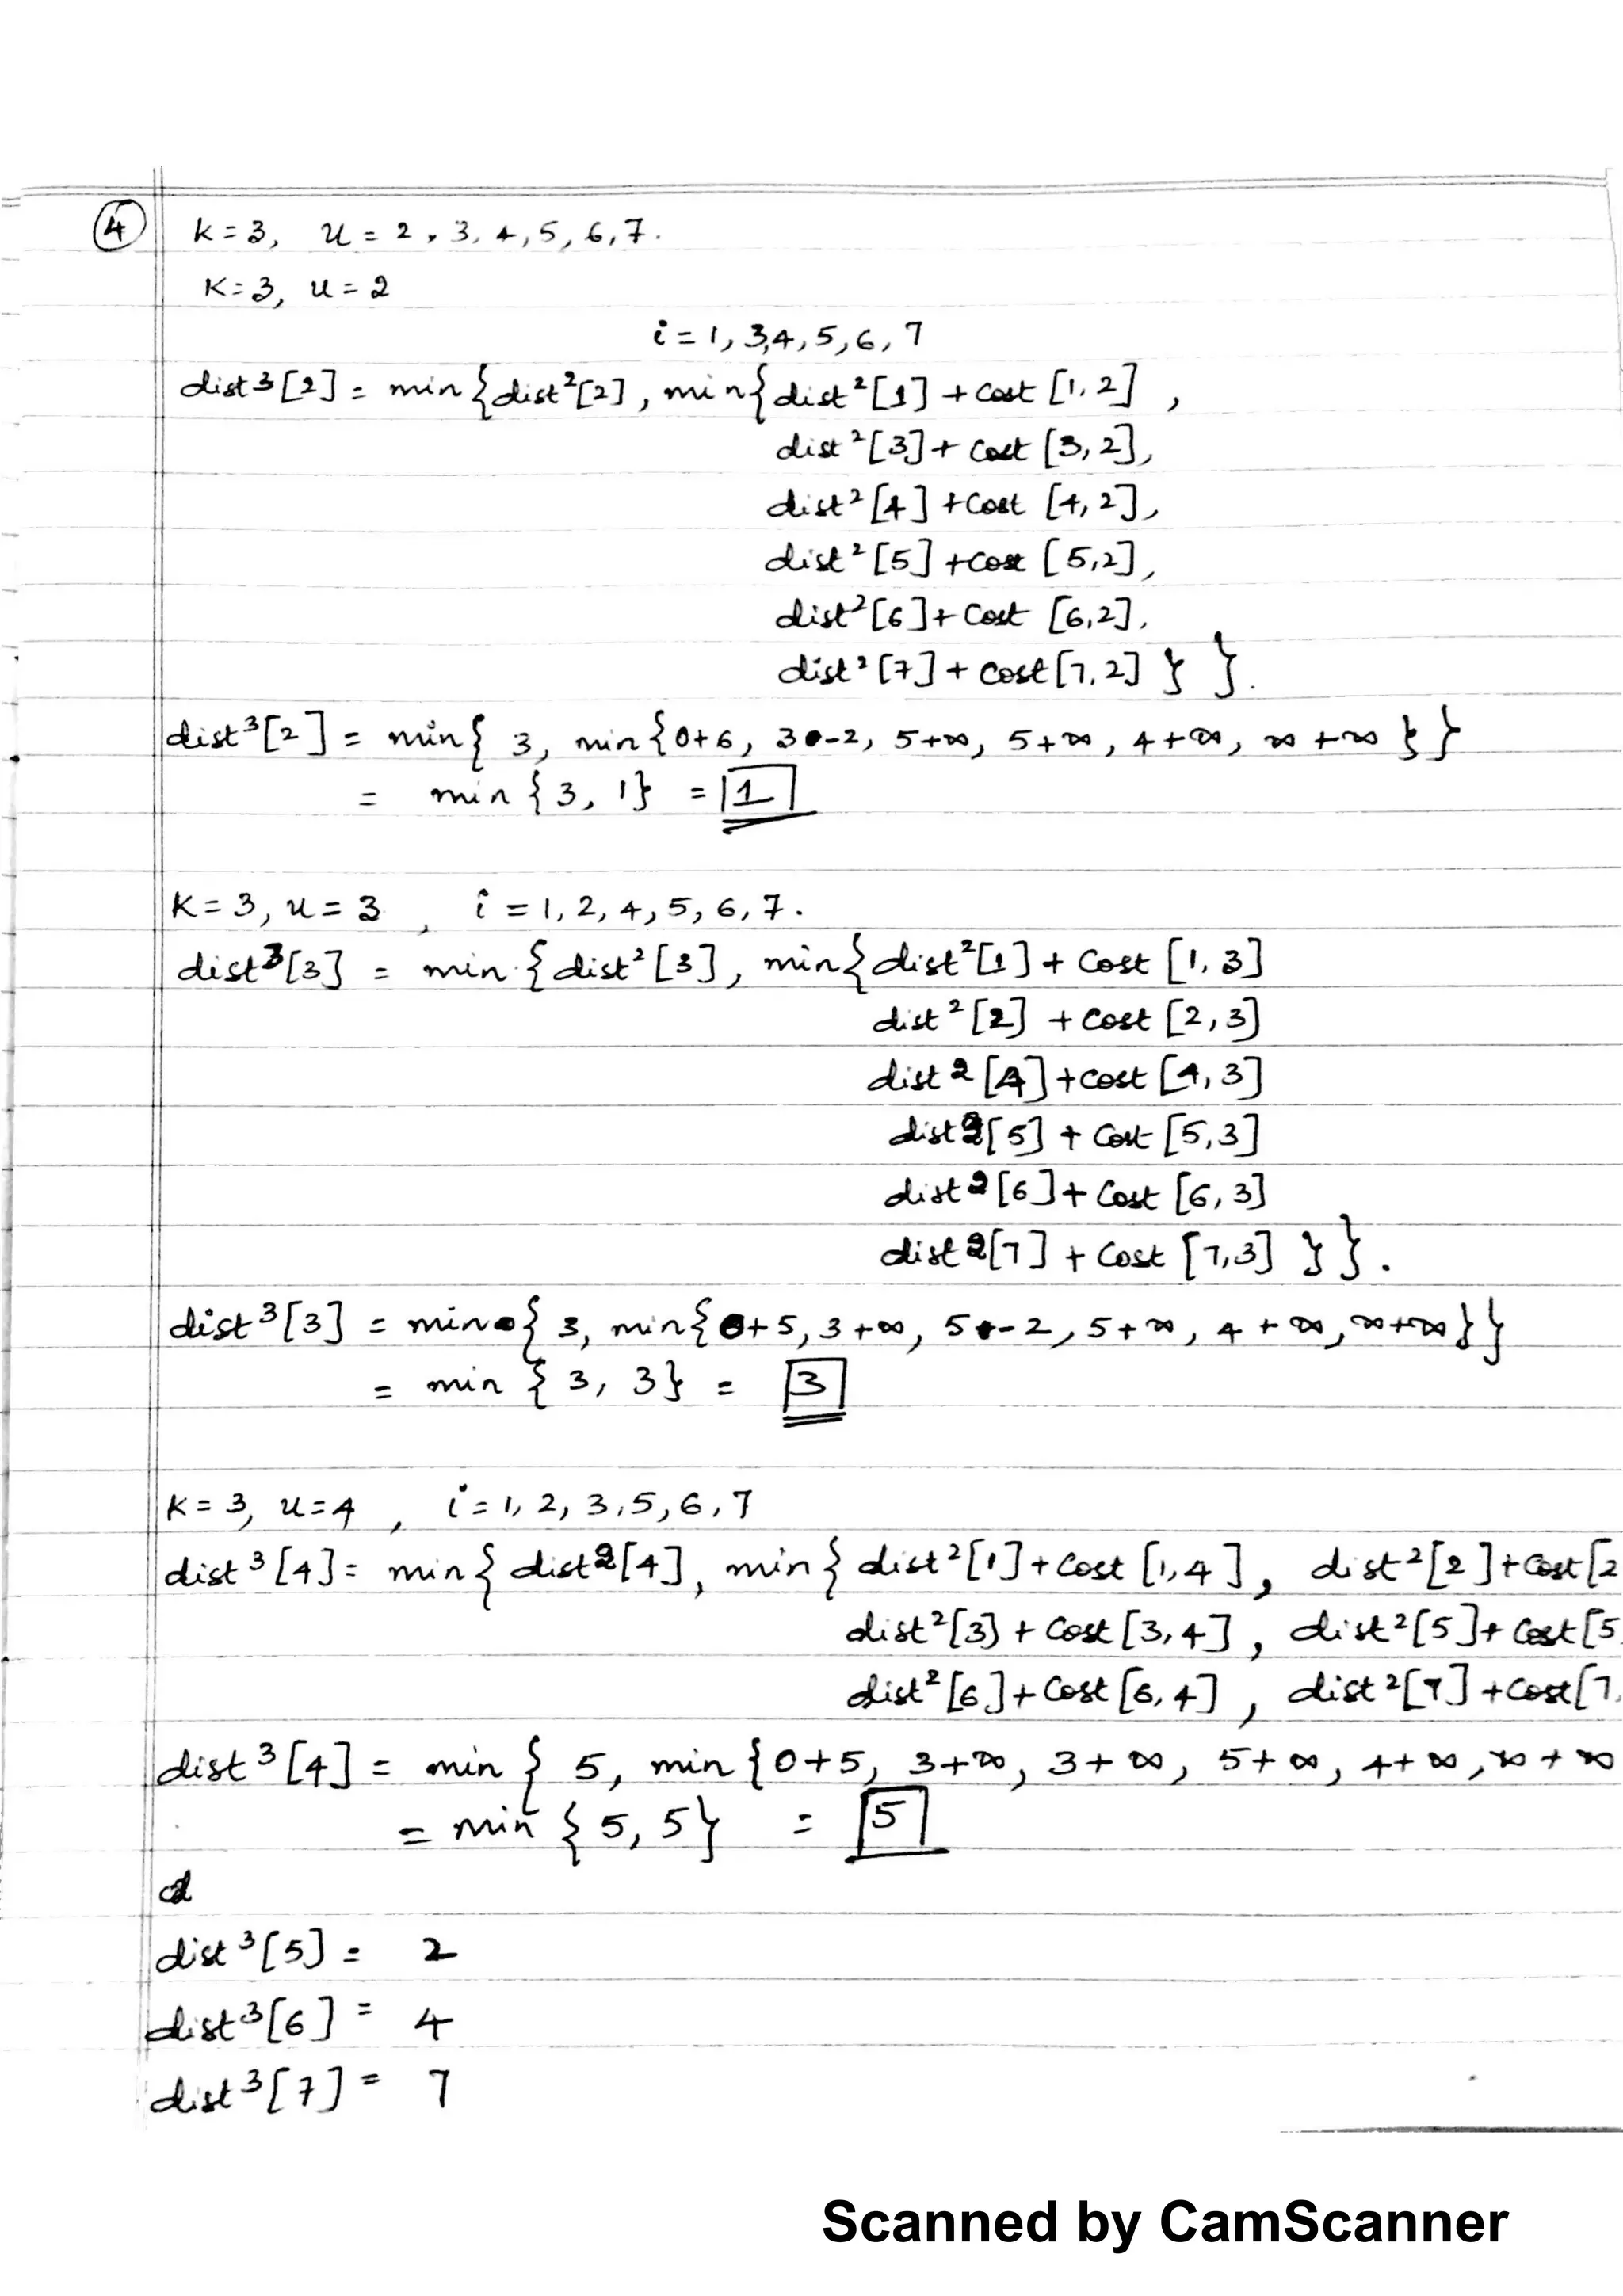 4 K = 3, u = 2, 3, 4, 5, 6, 7.
K = 3, u = 2
i = 1, 3,4, 5, 6, 7
dist³[2] = min{dist²[2], min{dist²[1] + cost [1,2],
dist²[3] + cost [3,2],
dist²[4] + cost [4,2],
dist²[5] + cost [5,2],
dist²[6] + cost [6,2],
dist²[7] + cost [7,2] } }.
dist³[2] = min{ 3, min{0+6, 3-2, 5+∞, 5+∞, 4+∞, ∞+∞ } }
= min {3, 1} = 1
K = 3, u = 3, i = 1, 2, 4, 5, 6, 7.
dist³[3] = min {dist²[3], min{dist²[1] + cost [1,3]
dist²[2] + cost [2,3]
dist2[4] + cost [4,3]
dist2[5] + cost [5,3]
dist2[6] + cost [6,3]
dist2[7] + cost [7,3] } }.
dist³[3] = min{ 3, min{0+5, 3+∞, 5-2, 5+∞, 4+∞, ∞+∞}}
= min {3, 3} = 3
K = 3, u = 4, i = 1, 2, 3, 5, 6, 7
dist³[4] = min{ dist2[4], min{ dist²[1] + cost [1,4], dist²[2] + cost[2
dist²[3] + cost [3,4], dist²[5] + cost[5,
dist²[6] + cost [6,4], dist²[7] + cost[7,
dist³[4] = min { 5, min {0+5, 3+∞, 3+∞, 5+∞, 4+∞, ∞+∞
= min {5, 5} = 5
d
dist³[5] = 2
dist³[6] = 4
dist³[7] = 7
Scanned by CamScanner